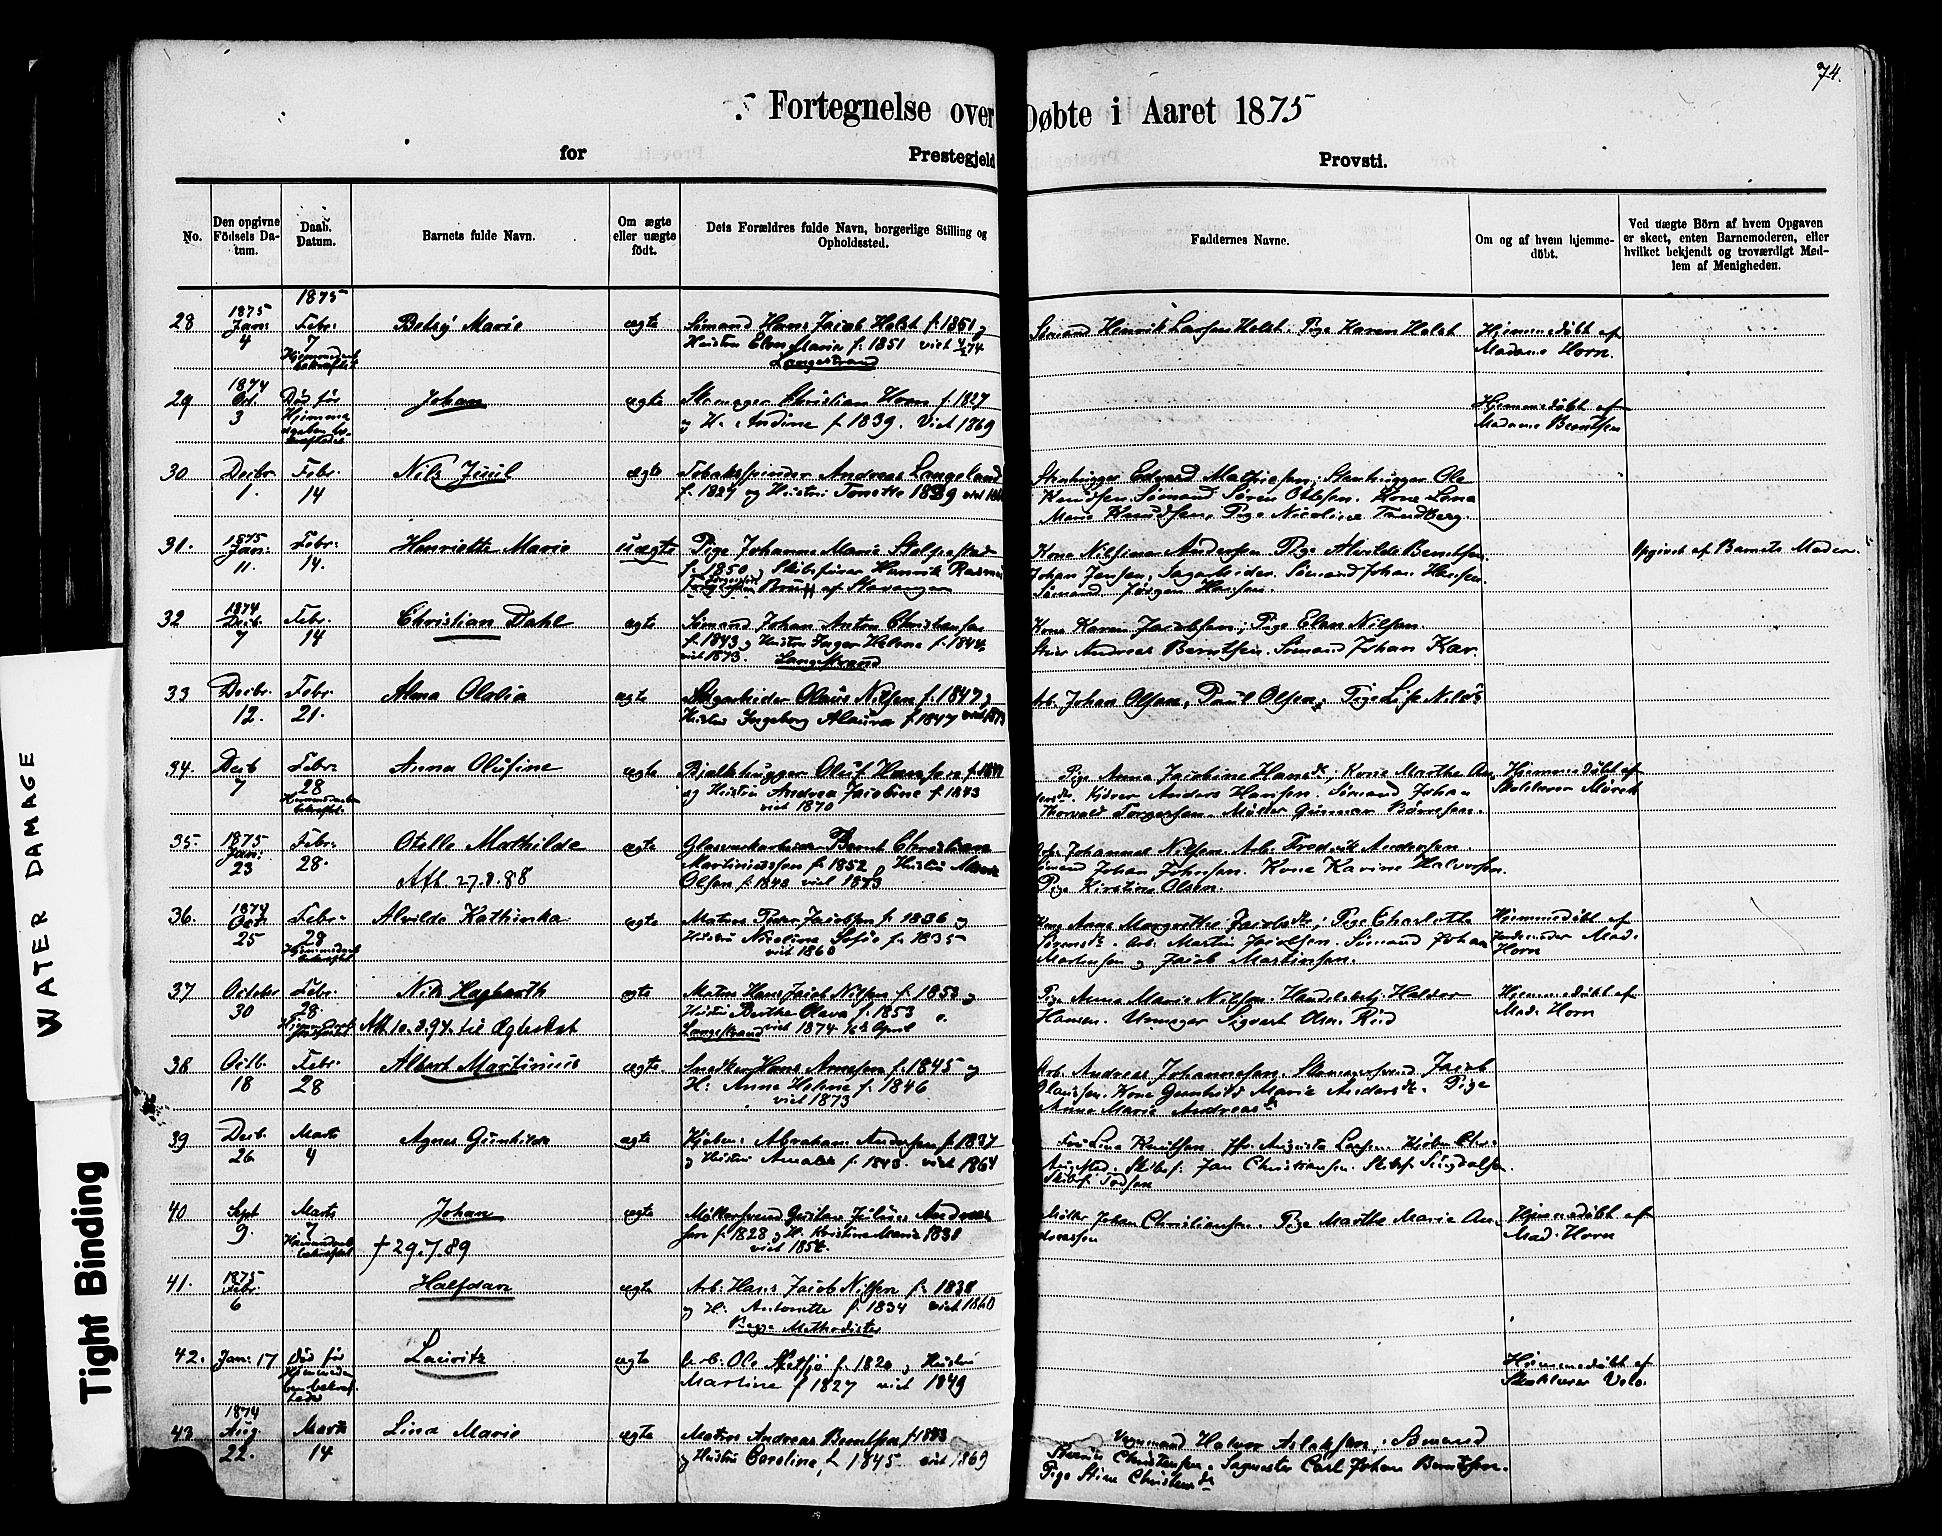 74.
Fortegnelse over Døbte i Aaret 1875
for Prestegjeld Provsti.
No. Den opgivne Födsels Datum. Daab. Datum. Barnets fulde Navn. Om ægte eller uægte födt. Dets Forældres fulde Navn, borgerlige Stilling og Opholdssted. Faddernes Navne. Om og af hvem hjemmedöbt. Ved uægte Börn af hvem Opgaven er skeet, enten Barnemoderen, eller hvilket bekjendt og troværdigt Medlem af Menigheden.
28 1875 Jan: 4 1875 Febr: 7 Betsy Marie ægte Sømand Hans Jacob Holst f. 1851 og
Hustru Elen Marie f. 1851 viet 4/2 74
Langestrand
Sømand Henrik Larsen Holst. Pige Karen Holst
Hjemmedöbt af
Madame Horn.
29 1874 Oct. 3 Død før Hjemmedaaben bekræftedes Johan ægte Christian Horn f. 1827
og H. Andine f. 1839. Viet 1869
Hjemmedöbt af
Madame Berntsen
30 Decbr. 1. Febr. 14 Nils Juul ægte Tobaksspinder Andreas Langeland
f. 1827 og Hustru Tonette 1839
Stenhugger Edvard Mathisen; Stenhugger Ole
Knudsen. Sømand Søren Olsen. Kone Lena
Marie Knudsen, Pige Nicoline Tandberg.
31. 1875 Jan: 11. Febr: 14. Henriette Marie uægte Pige Johanne Marie Stolpestad
f. 1850, Skibsfører Henrik Rasmus
Bruun af Stavanger
Kone Nilsine Andersen Pige Alvilde Berntsen.
Johan Jensen, Sagarbeider. Sømand Johan Hansen.
Sømand Jørgen Hansen.
Opgivet af Barnets Moder.
32 1874 Decb. 7 Febr. 14 Christian Dahl ægte Sømand Johan Anton Christensen
f. 1843 og Hustru Inger Helene f. 1844,
viet 1873. Langestrand
Kone Karen Jacobsen; Pige Elen Nilsen.
Andreas Berntsen. Sømand Johan Kar.
33 Decbr. 12. Febr. 21. Alma Olalia ægte Sagarbeider Olaus Nilsen f. 1847 og
Hustru Ingeborg Alaura f. 1847 viet 1873
Arb. Johan Olsen, Paul Olsen, Pige Lise Nilsdr
34. Decb 7 Febr: 28 Hjemmedaaben bekræftet Anna Olufine ægte Bjelkehugger Oluf Hansen
og Hustru Andrea Jacobine f. 1843
viet 1870
Pige Anna Jacobine Hansdr, Kone Marthe An-
dersdr. Anders Hansen. Sømand Johan
Thorvald Torgersen. Møller Gunnar Børresen.
Hjemmedöbt af
Skolelærer Mørch
35 1875 Jan: 23 Febr: 28. Otille Mathilde ægte Glasværkarbeider Bernt Christian
Aftb. 27.8.88 Martiniussen f. 1852 Hustru Maren
Olsen f. 1843 viet 1873
Arb. Johannes Nilsen. Arb. Frederik Andersen.
Sømand Johan Johnsen. Kone Karine Halvorsen.
Pige Kirstine Olsen.
36. 1874 Oct. 25 Febr. 28 Hjemmedaab bekræftet Alvilde Kathinka ægte Matros Peder Jacobsen f. 1836 og
Hustru Nicoline Sofie f. 1835
viet 1860
Kone Anne Margrethe Jacobsdr; Pige Charlotte
Sørensdr. Arb. Martin Jacobsen. Sømand Johan
Mortensen og Jacob Martinsen.
Hjemmedöbt af
Jordemoder Mad.
Horn
37 October 30 Febr. 28 Nils Hagbarth ægte Matros Hans Jacob Nilsen f. 1853 og
Att. 10.3.94. til Ægteskab Hustru Berthe Olava f. 1853
Langestrand viet 1874 April
Pige Anna Marie Nilsen. Handelsbetj. Haldor
Hansen. Urmager Sigvart Olsen Röd
Hjemmedöbt af
Mad. Horn
38 Octb. 18 Febr. 28 Albert Martinius ægte. Snedker Hans Arnesen f. 1845 og
H: Anne Helene f. 1846
viet 1873
Arb. Andreas Johannesen. Jacob
Olaussen. Kone Gunhild Marie Andersdr. Pige
Anne Marie Andreasdr
39 Decb. 26 Marts 4 Agnes Gunhilda ægte Kjøbm: Abraham Andersen f. 1837
og Hustru Amalie f. 1843. viet 1864
Fru Lina Knudsen Fr. Augusta Larsen. Kjøbm Chr.
Augestad. Skibsf. Jan Christiansen. Skibsf. Sundalsen.
Skibsf. Todsen
40 Sept 9. Marts 7 Hjemmedaab bekræftet Johan ægte Møllersvend Gustav Julius Andreas-
† 29.7.89 sen f. 1828 og H. Kristine Marie 1831
viet 1854.
Møller Johan Christiansen. Pige Marthe Marie An-
dreassen
Hjemmedöbt af
Mad. Horn
41. 1875 Febr. 6 Halfdan ægte Arb. Hans Jacob Nilsen f. 1838
og H. Antonette f. 1834 viet 1860
Begge Methodister
42. Jan: 17 Död før Hjemmedaaben bekræftedes Lauritz ægte Arb. Ole f. 1820 og Hustru
Martine f. 1827 viet 1849
Hjemmedöbt af
Skolelærer Velo.
43 1874 Aug 22. Marts 14 Lina Marie ægte Matros Andreas Berntsen f. 1843
og Hustru Caroline f. 1845 viet 1869
Vognmand Halvor Aslaksen;
Christensen. Sagmester Carl Johan Berntsen.
Pige Stine Christensdr
WATER DAMAGE
Tight Binding